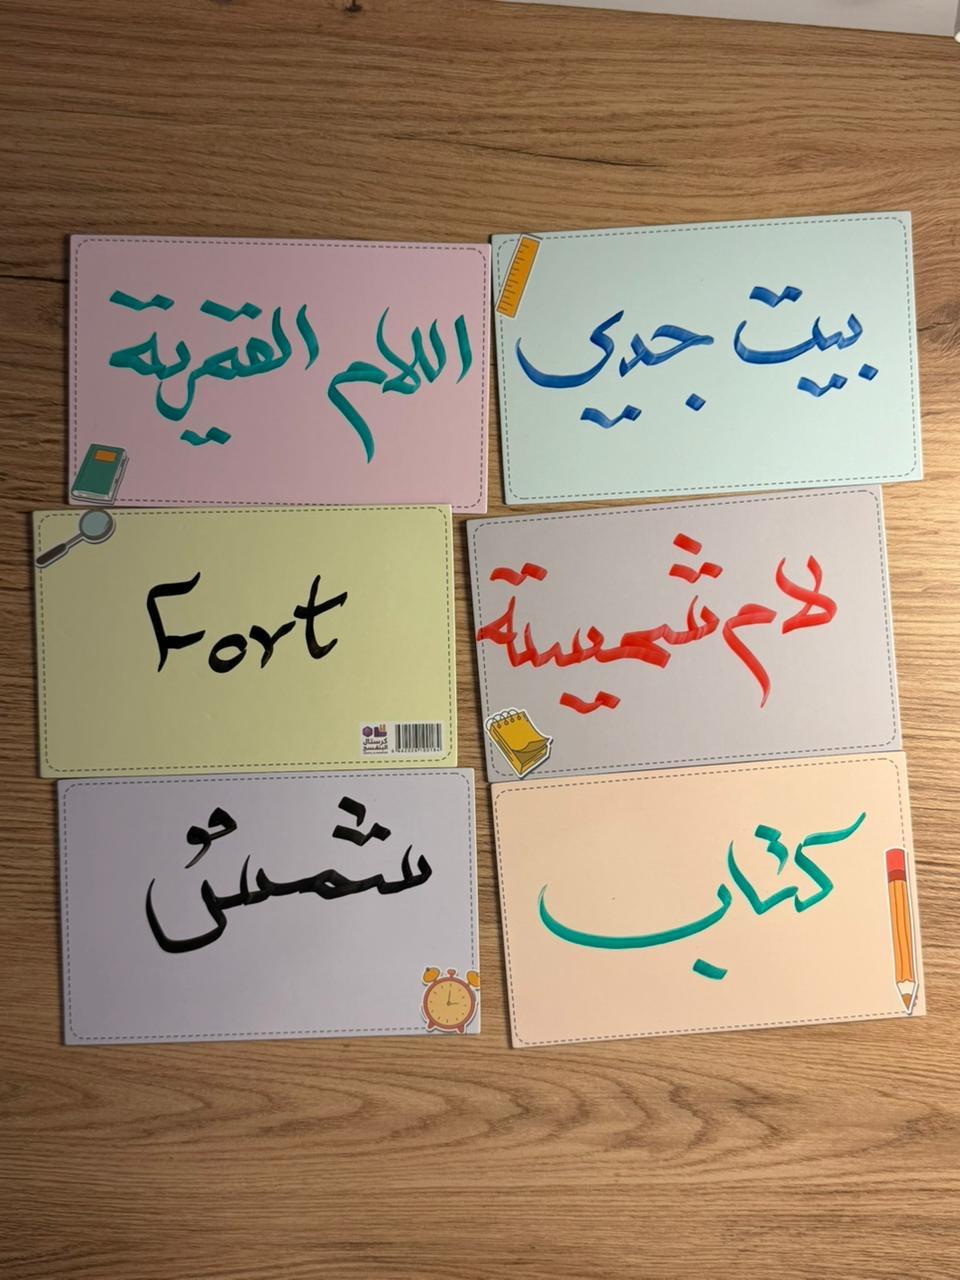 بيت جدي
اللام القمرية
لام شمسية
Fort
كرستال
البنفسج
كتاب
شمسٌ